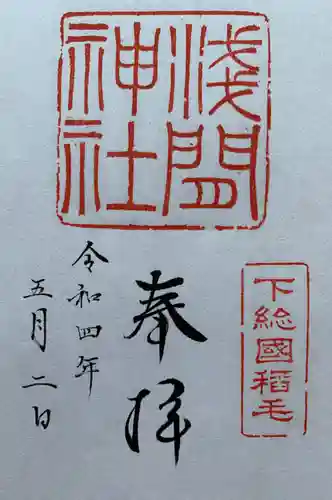 浅間
神社
下総國稲毛
奉拝
令和四年
五月二日